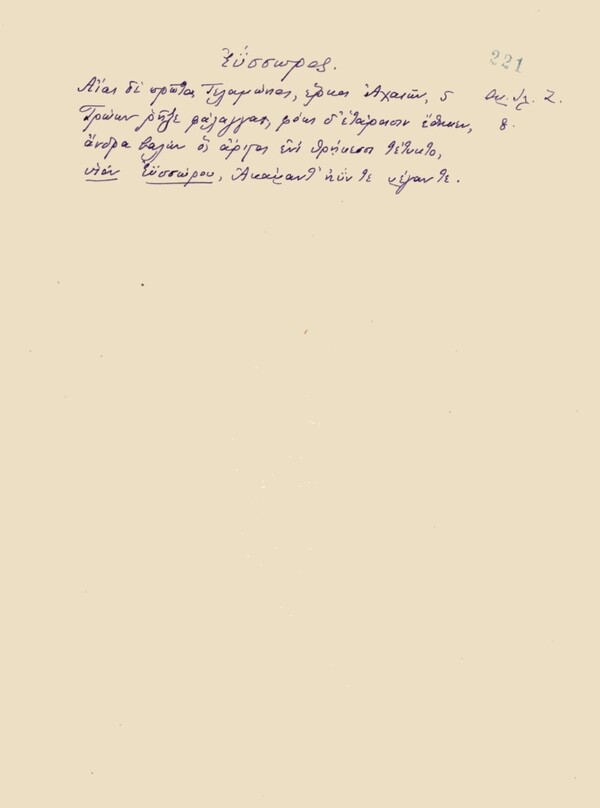 221
Ἐΰσσωρος.
Αἴας δὲ πρῶτος Τελαμώνιος, ἕρκος Ἀχαιῶν, 5 Ομ. Ιλ. Ζ.
Τρώων ῥῆξε φάλαγγα, φόως δ' ἑτάροισιν ἔθηκεν, 8.
ἄνδρα βαλὼν ὃς ἄριστος ἐνὶ Θρήκεσσι τέτυκτο,
υἱὸν Ἐϋσσώρου, Ἀκάμαντ' ἠΰν τε μέγαν τε.